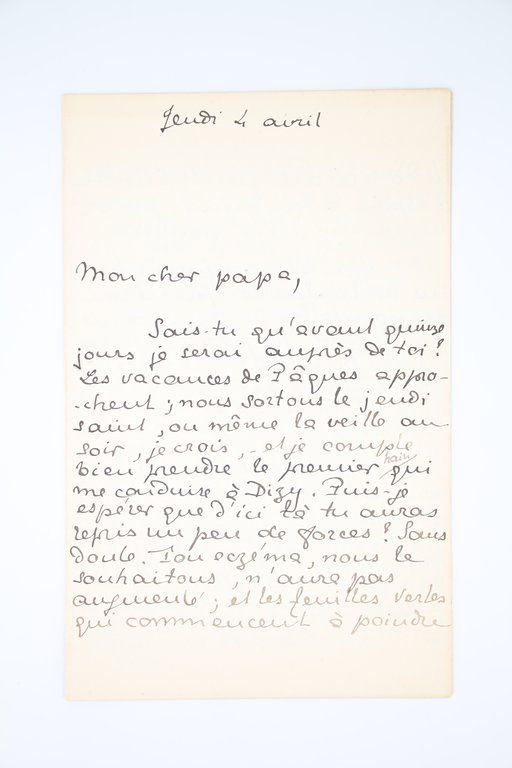 Jeudi 4 avril
Mon cher papa,
Sais-tu qu'avant quinze
jours je serai auprès de toi ?
Les vacances de Pâques appro-
-chent ; nous sortons le jeudi
saint, ou même la veille au
soir, je crois, - et je compte
bien prendre le premier train qui
me conduise à Dizy. Puis-je
espérer que d'ici là tu auras
repris un peu de forces ? Sans
doute. Ton eczéma, nous le
souhaitons, n'aura pas
augmenté ; et les feuilles vertes
qui commencent à poindre